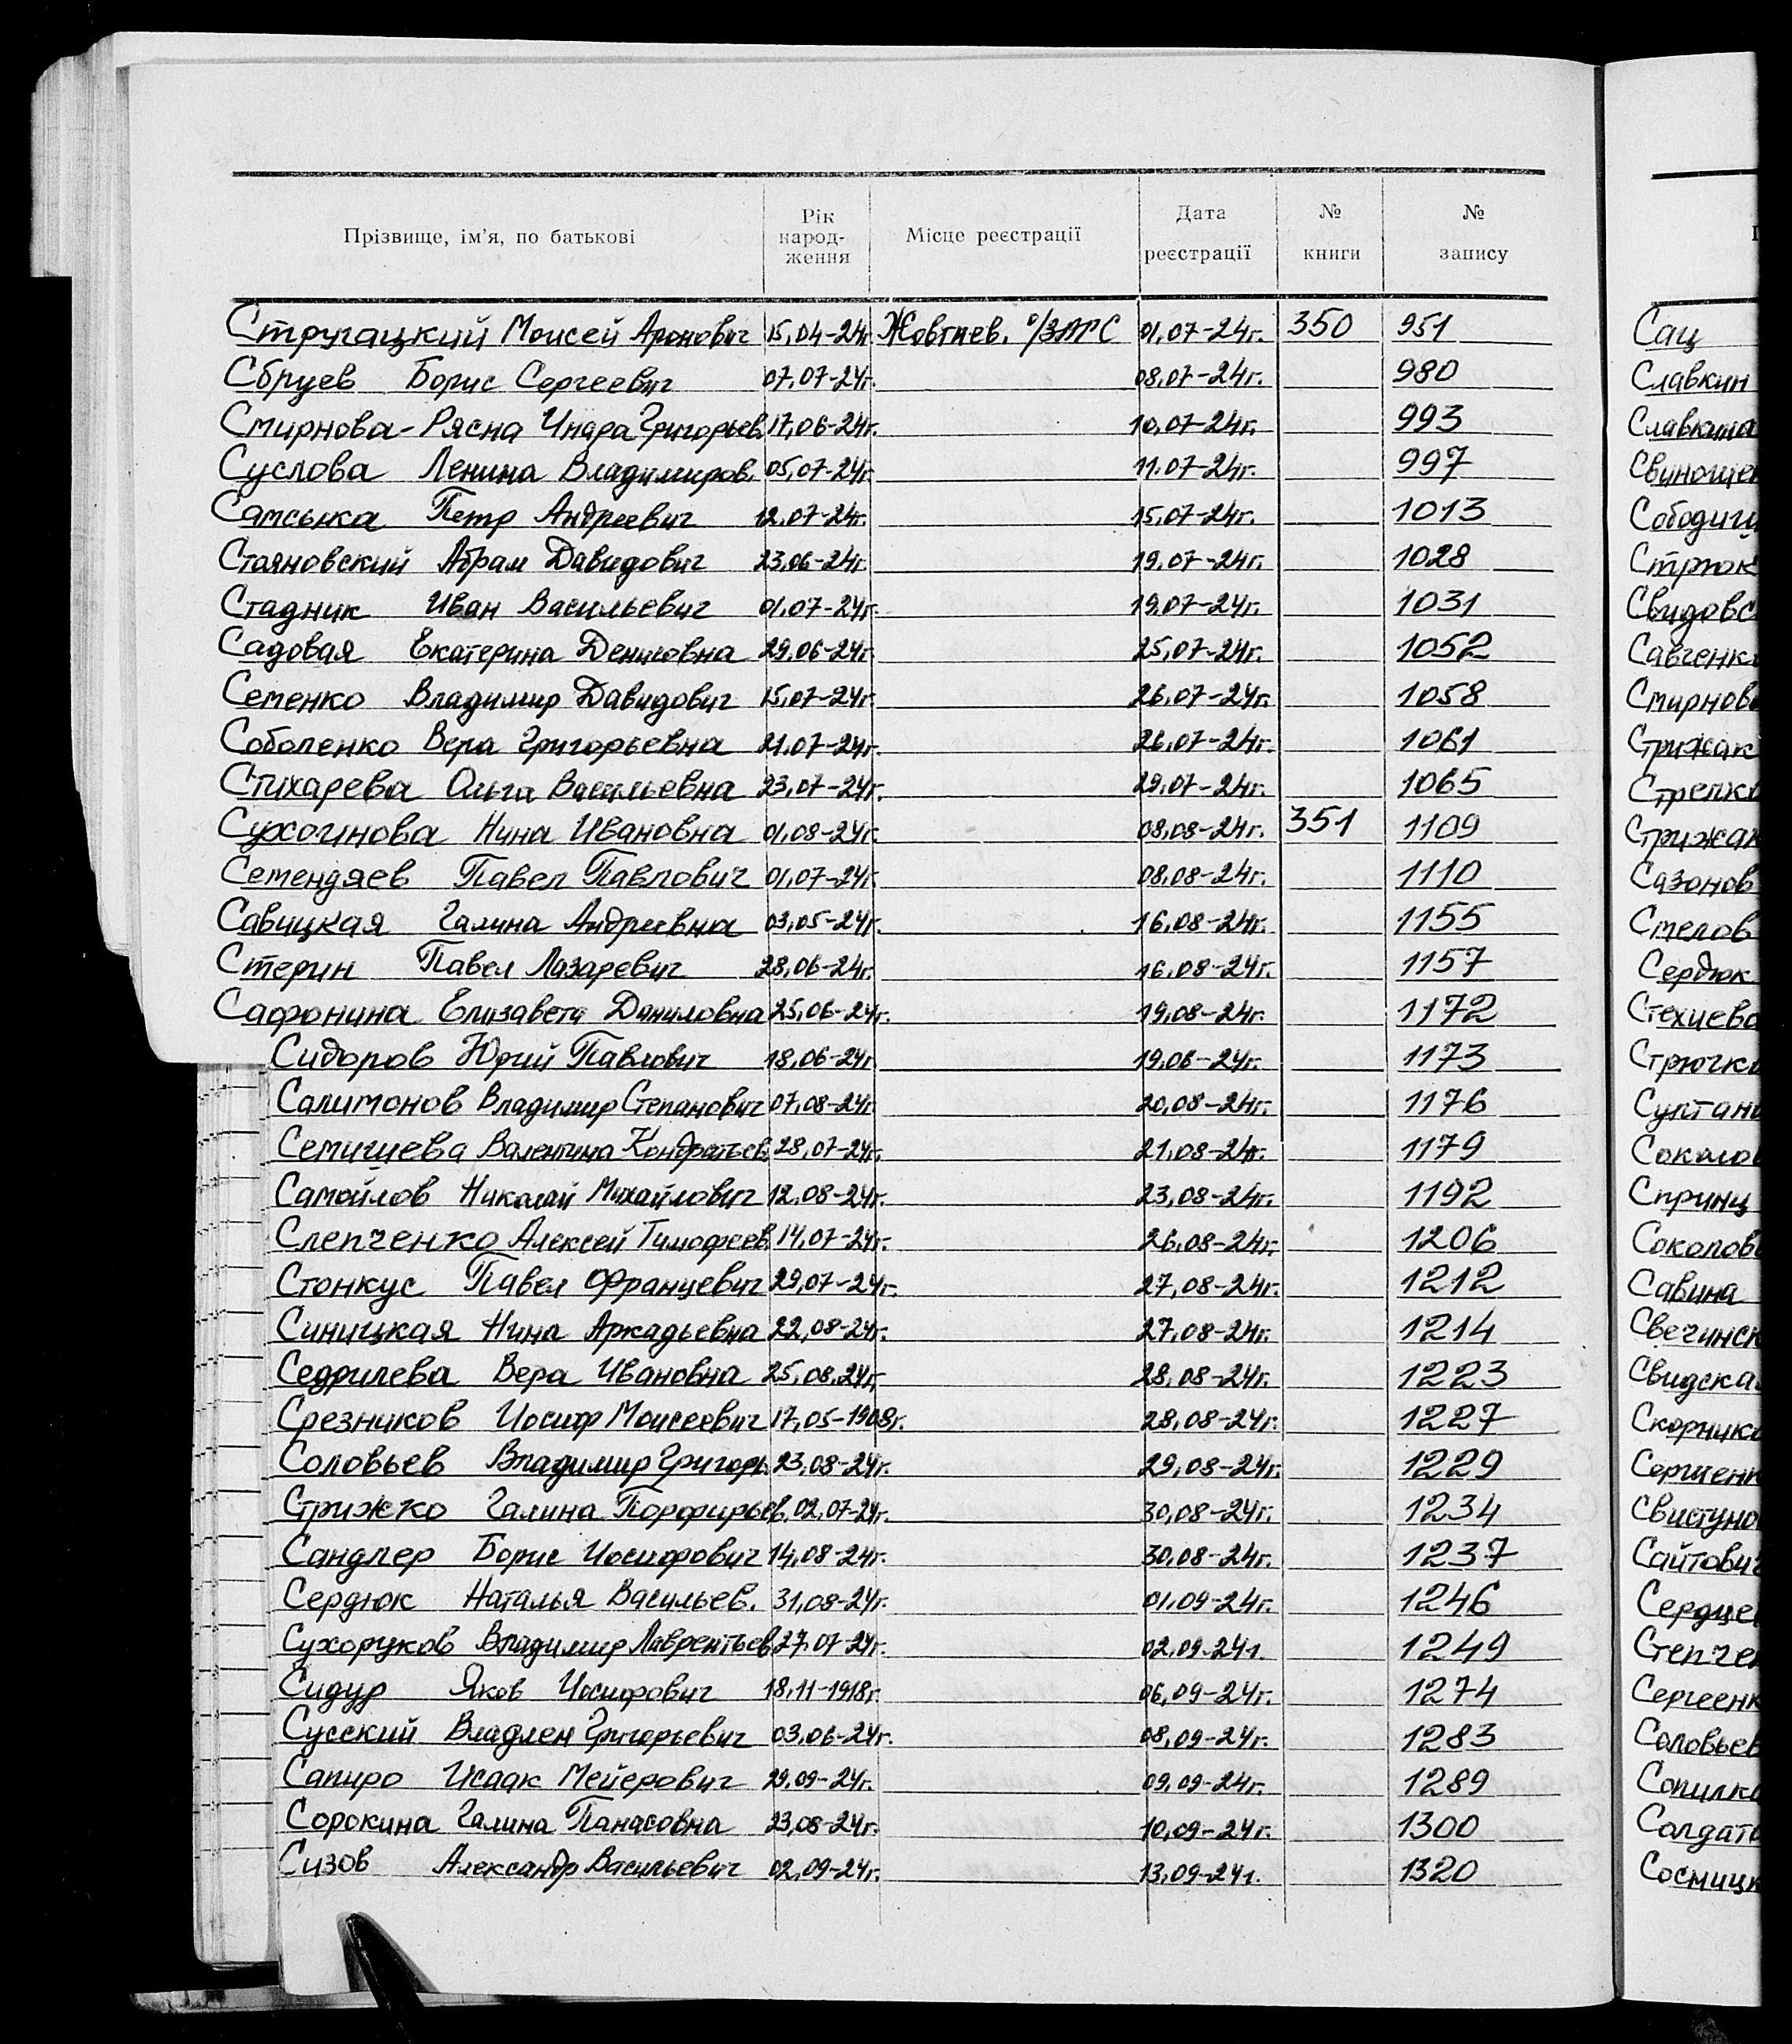 Прізвище, ім'я, по батькові Рік народ- ження Місце реєстрації Дата реєстрації № книги № запису
Стругацкий Моисей Аронович 15.04-24г. Жовтнев. о/ЗАГС 01.07-24г. 350 951
Сбруев Борис Сергеевич 07.07-24г. 08.07-24г. 980
Смирнова-Рясна Индра Григорьев. 17.06-24г. 10.07-24г. 993
Суслова Ленина Владимиров. 05.07-24г. 11.07-24г. 997
Самсыка Петр Андреевич 12.07-24г. 15.07-24г. 1013
Стаяновский Абрам Давидович 23.06-24г. 19.07-24г. 1028
Стадник Иван Васильевич 01.07-24г. 19.07-24г. 1031
Садовая Екатерина Денисовна 29.06-24г. 25.07-24г. 1052
Семенко Владимир Давидович 15.07-24г. 26.07-24г. 1058
Соболенко Вера Григорьевна 21.07-24г. 26.07-24г. 1061
Стихарева Ольга Васильевна 23.07-24г. 29.07-24г. 1065
Сухочинова Нина Ивановна 01.08-24г. 08.08-24г. 351 1109
Семендяев Павел Павлович 01.07-24г. 08.08-24г. 1110
Савицкая Галина Андреевна 03.05-24г. 16.08-24г. 1155
Стерин Павел Лазаревич 28.06-24г. 16.08-24г. 1157
Сафонина Елизавета Даниловна 25.06-24г. 19.08-24г. 1172
Сидоров Юрий Павлович 18.06-24г. 19.08-24г. 1173
Салимонов Владимир Степанович 07.08-24г. 20.08-24г. 1176
Семишева Валентина Кондратьев. 28.07-24г. 21.08-24г. 1179
Самойлов Николай Михайлович 12.08-24г. 23.08-24г. 1192
Слепченко Алексей Тимофеев. 14.07-24г. 26.08-24г. 1206
Стонкус Павел Францевич 29.07-24г. 27.08-24г. 1212
Синицкая Нина Аркадьевна 22.08-24г. 27.08-24г. 1214
Седрилева Вера Ивановна 25.08.24г. 28.08-24г. 1223
Срезников Иосиф Моисеевич 17.05-1908г. 28.08-24г. 1227
Соловьев Владимир Григорь. 23.08-24г. 29.08-24г. 1229
Стрижко Галина Порфирьев. 02.07-24г. 30.08-24г. 1234
Сандлер Борис Иосифович 14.08-24г. 30.08-24г. 1237
Сердюк Наталья Васильев. 31.08-24г. 01.09-24г. 1246
Сухоруков Владимир Лаврентьев. 27.07-24г. 02.09.24г. 1249
Сидур Яков Иосифович 18.11-1918г. 06.09-24г. 1274
Сусский Владлен Григорьевич 03.06-24г. 08.09-24г. 1283
Сапиро Исаак Мейерович 29.09-24г. 09.09-24г. 1289
Сорокина Галина Панасовна 23.08-24г. 10.09-24г. 1300
Сизов Александр Васильевич 02.09-24г. 13.09-24г. 1320
Сац
Славкин
Славкина
Стрюк
Савченк
Смирнов
Стрижак
Стрижак
Сазонов
Смелов
Сердюк
Соколов
Спринц
Соколов
Савина
Соловьев